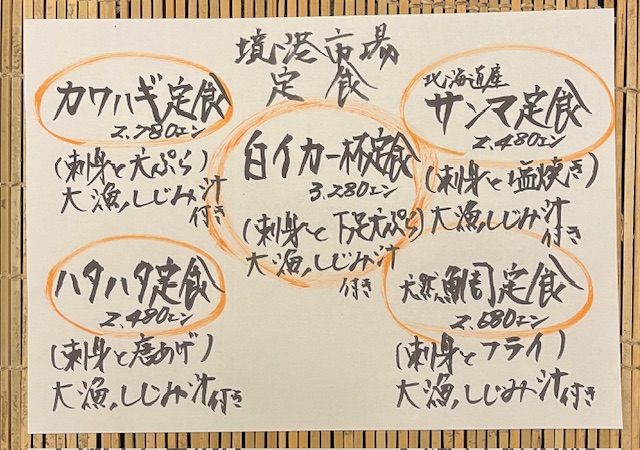 境港市場
定食
カワハギ定食
2.780エン
(刺身と天ぷら)
大漁、しじみ汁
付き
北海道産
サンマ定食
2.480エン
(刺身と塩焼き)
大漁、しじみ汁
付き
白イカ一杯定食
3.280エン
(刺身と下足天ぷら)
大漁、しじみ汁
付き
ハタハタ定食
2.480エン
(刺身と唐あげ)
大漁、しじみ汁付き
天然鯛定食
2.680エン
(刺身とフライ)
大漁、しじみ汁付き